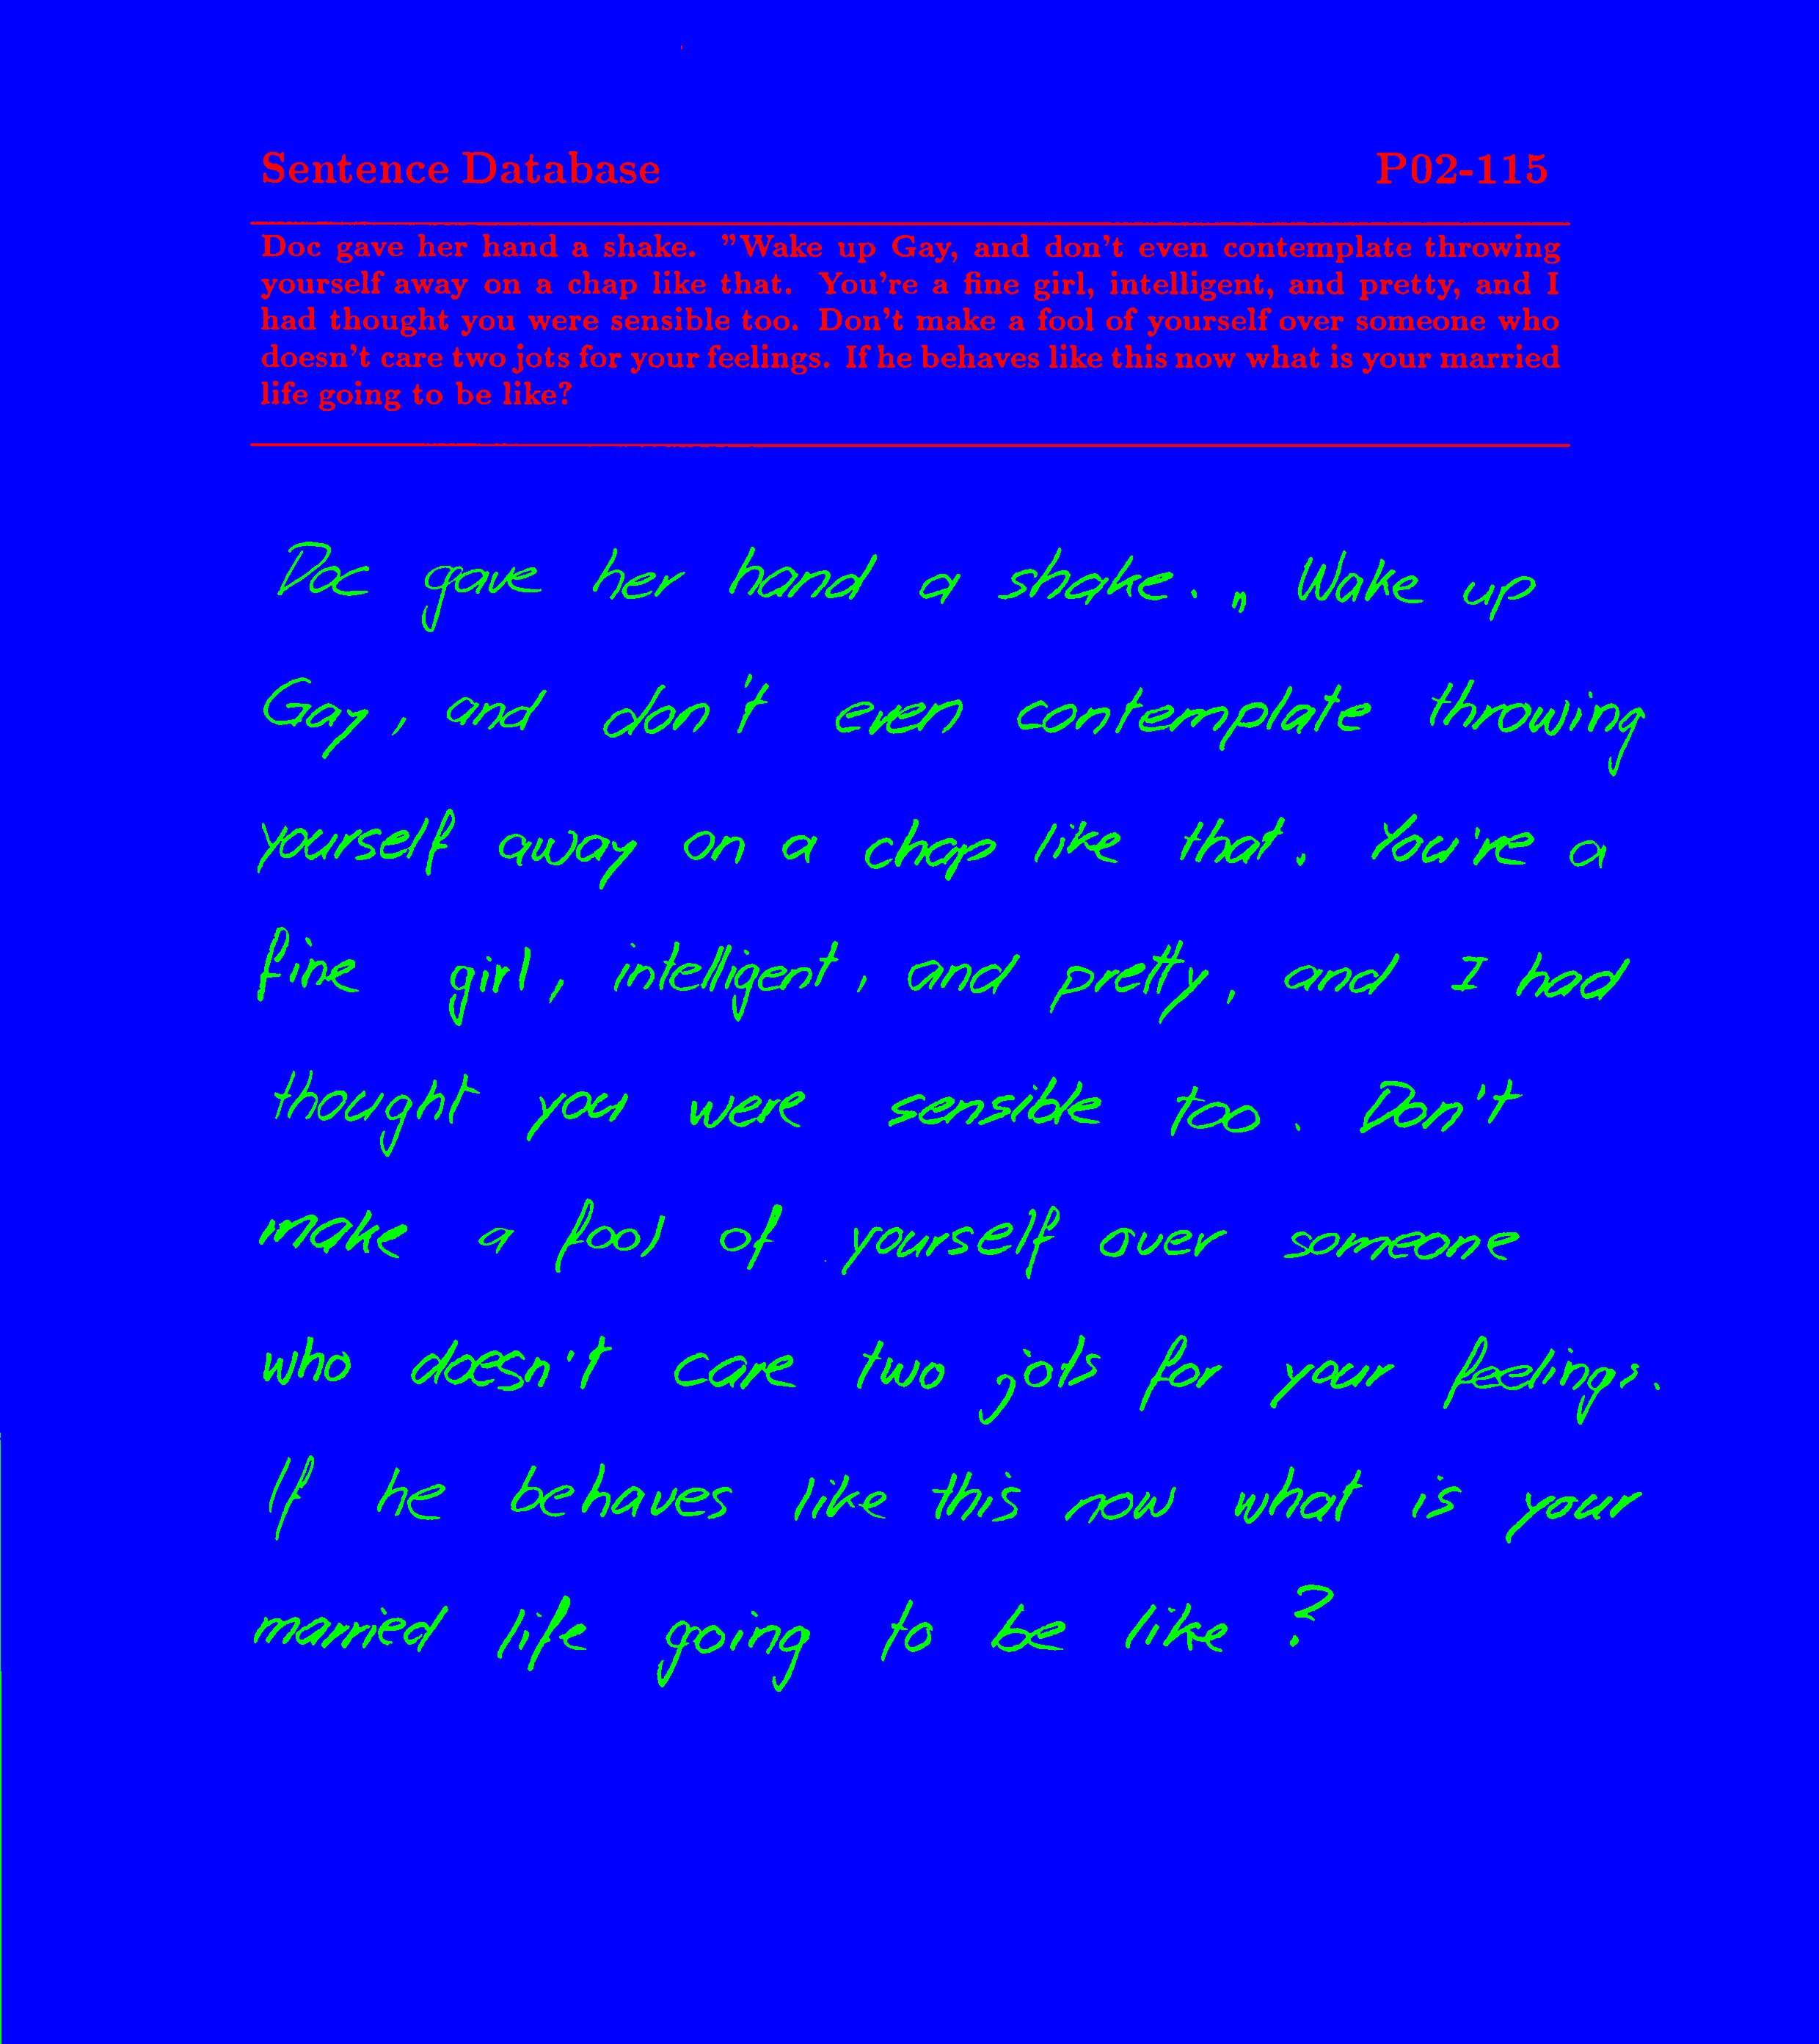 Sentence Database P02-115
Doc gave her hand a shake. "Wake up Gay, and don't even contemplate throwing
yourself away on a chap like that. You're a fine girl, intelligent, and pretty, and I
had thought you were sensible too. Don't make a fool of yourself over someone who
doesn't care two jots for your feelings. If he behaves like this now what is your married
life going to be like?
Doc gave her hand a shake. „ Wake up
Gay, and don't even contemplate throwing
yourself away on a chap like that. You're a
fine girl, intelligent, and pretty, and I had
thought you were sensible too. Don't
make a fool of yourself over someone
who doesn't care two jots for your feelings.
If he behaves like this now what is your
married life going to be like?